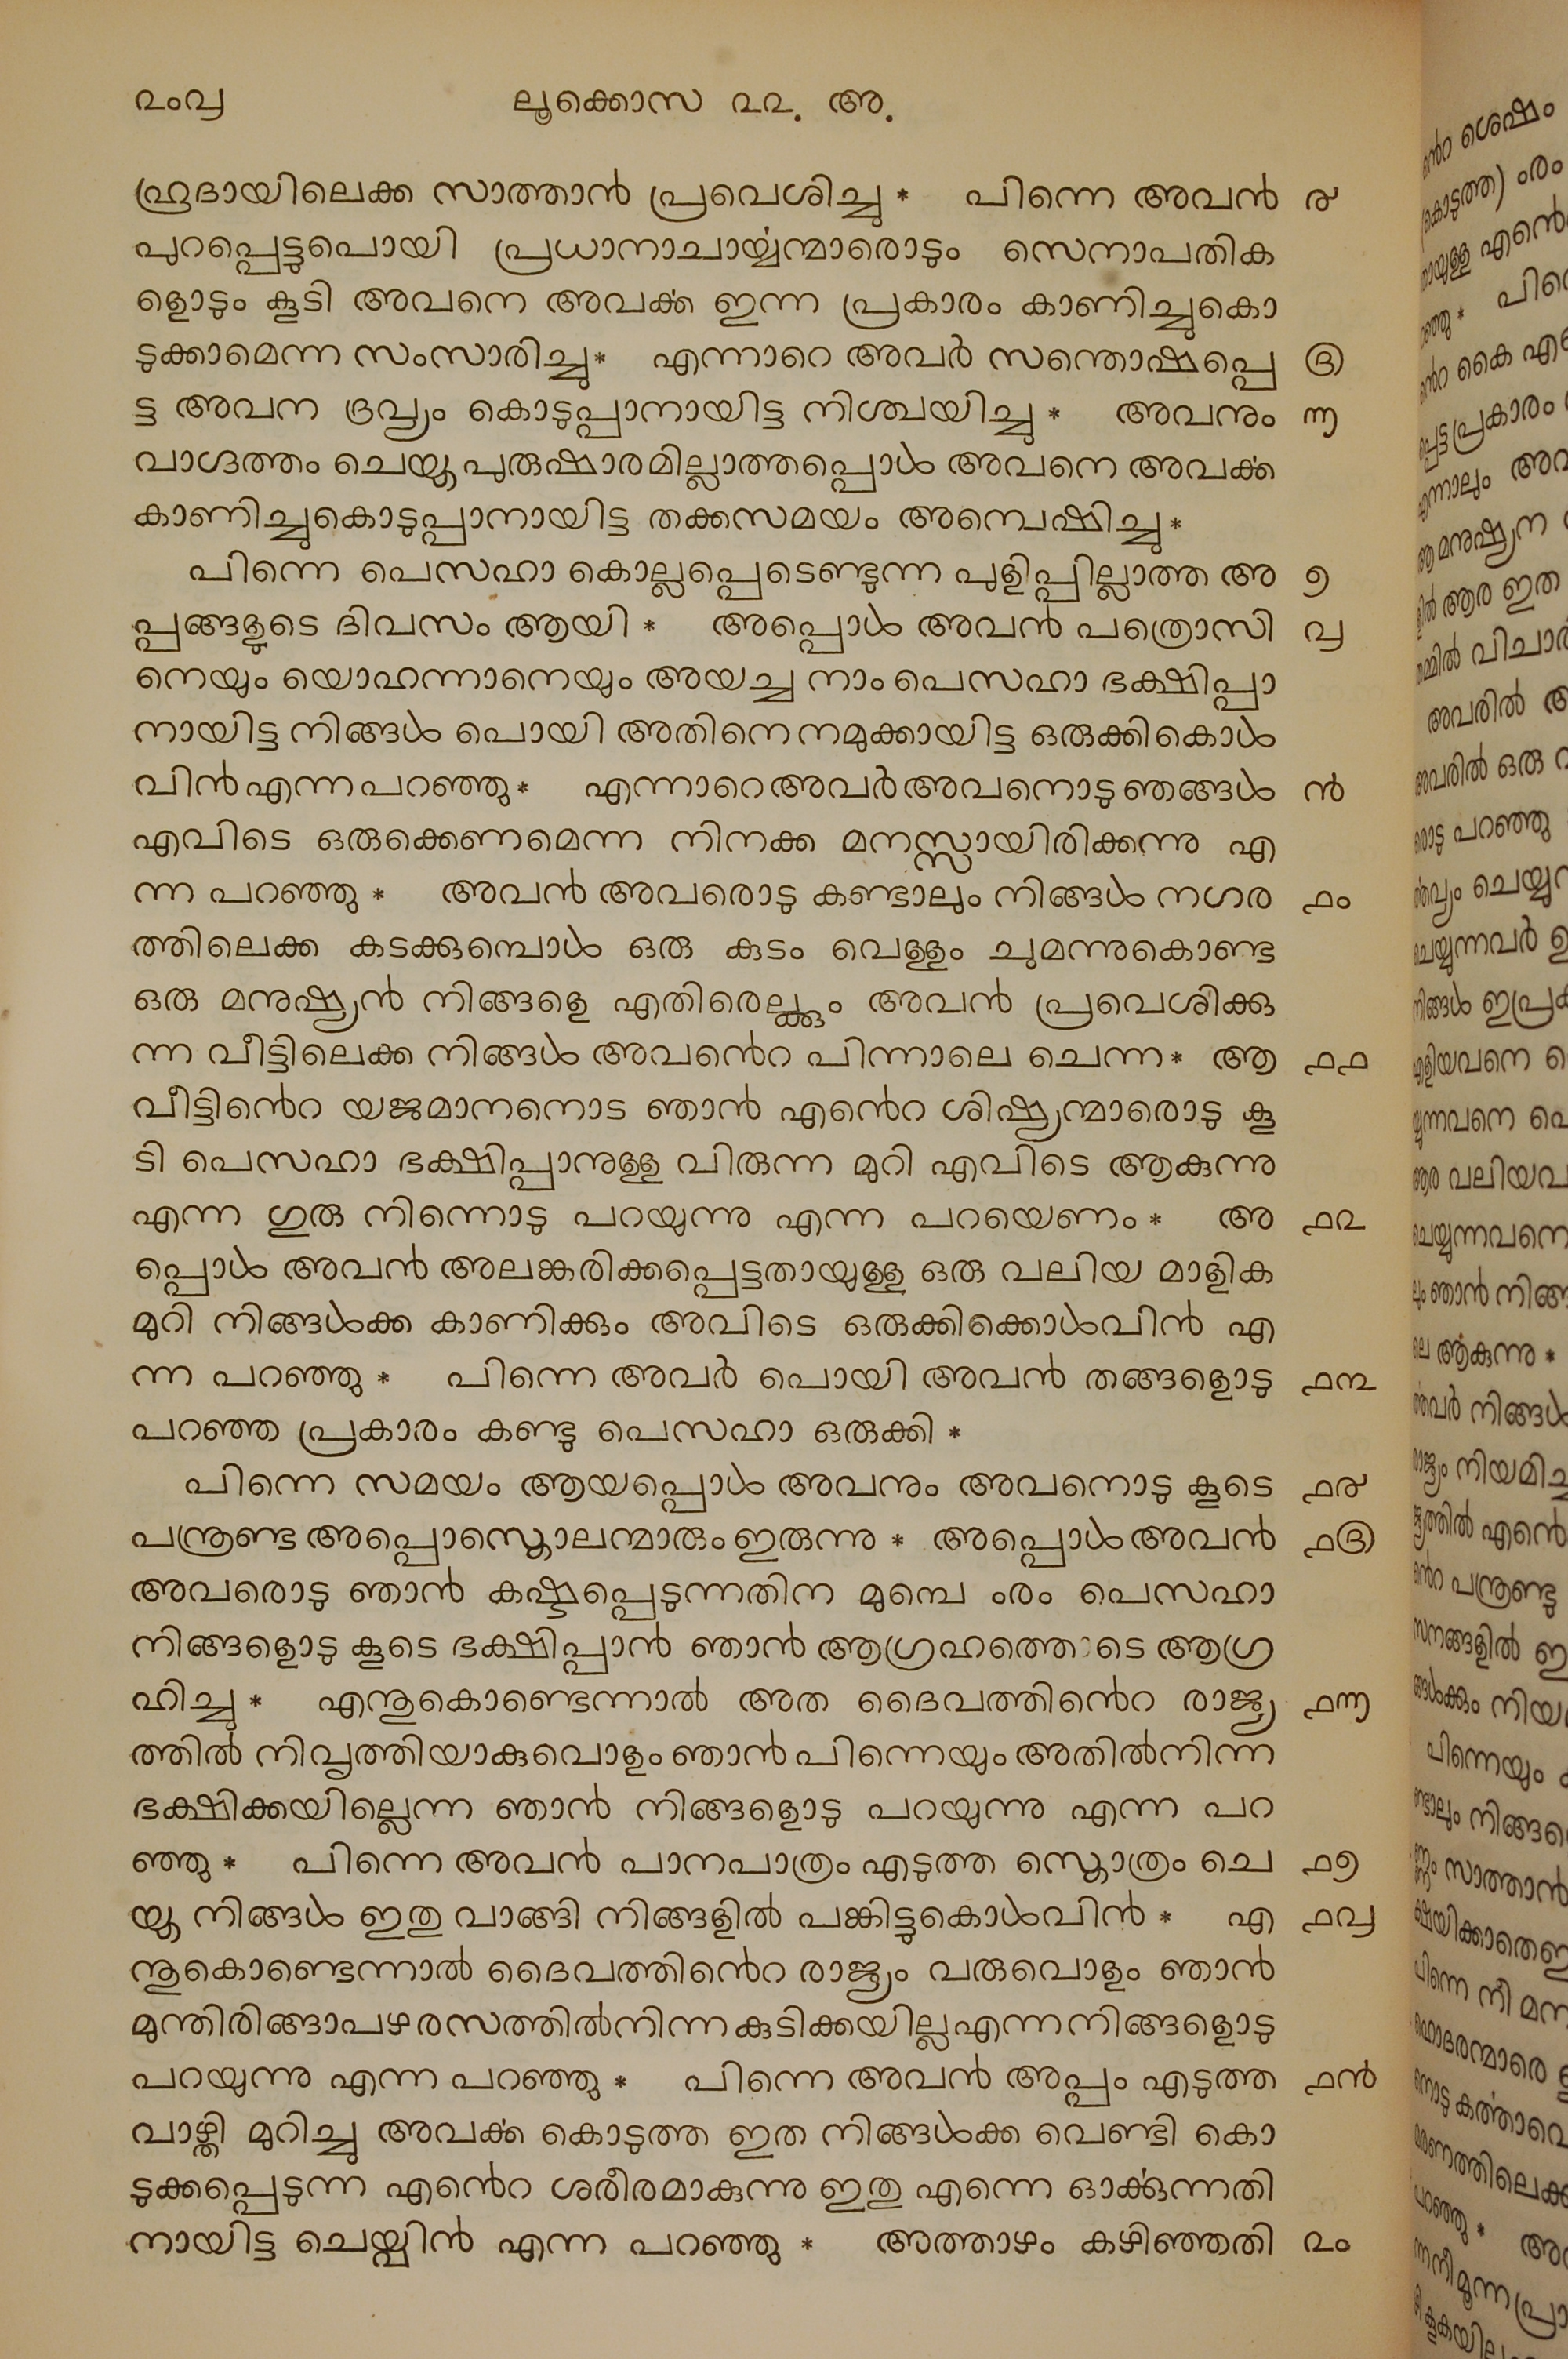 ൨ം൮ ലൂക്കൊസ ൨൨. അ.
ഹൂദായിലെക്ക സാത്താൻ പ്രവെശിച്ചു * പിന്നെ അവൻ ൪
പുറപ്പെട്ടുപൊയി പ്രധാനാചാൎയ്യന്മാരൊടും സെനാപതിക
ളൊടും കൂടി അവനെ അവൎക്ക ഇന്ന പ്രകാരം കാണിച്ചുകൊ
ടുക്കാമെന്ന സംസാരിച്ചു * എന്നാറെ അവർ സന്തൊഷപ്പെ ൫
ട്ട അവന ദ്രവ്യം കൊടുപ്പാനായിട്ട നിശ്ചയിച്ചു * അവനും ൬
വാഗ്ദത്തം ചെയ്തു പുരുഷാരമില്ലാത്തപ്പൊൾ അവനെ അവൎക്ക
കാണിച്ചുകൊടുപ്പാനായിട്ട തക്കസമയം അന്വെഷിച്ചു *
പിന്നെ പെസഹാ കൊല്ലപ്പെടെണ്ടുന്ന പുളിപ്പില്ലാത്ത അ ൭
പ്പങ്ങളുടെ ദിവസം ആയി * അപ്പൊൾ അവൻ പത്രൊസി ൮
നെയും യൊഹന്നാനെയും അയച്ച നാം പെസഹാ ഭക്ഷിപ്പാ
നായിട്ട നിങ്ങൾ പൊയി അതിനെ നമുക്കായിട്ട ഒരുക്കികൊൾ
വിൻ എന്ന പറഞ്ഞു * എന്നാറെ അവർ അവനൊടു ഞങ്ങൾ ൯
എവിടെ ഒരുക്കെണമെന്ന നിനക്ക മനസ്സായിരിക്കുന്നു എ
ന്ന പറഞ്ഞു * അവൻ അവരൊടു കണ്ടാലും നിങ്ങൾ നഗര ൧ം
ത്തിലെക്ക കടക്കുമ്പൊൾ ഒരു കുടം വെള്ളം ചുമന്നുകൊണ്ട
ഒരു മനുഷ്യൻ നിങ്ങളെ എതിരെല്ക്കും അവൻ പ്രവെശിക്കു
ന്ന വീട്ടിലെക്ക നിങ്ങൾ അവന്റെ പിന്നാലെ ചെന്ന * ആ ൧൧
വീട്ടിന്റെ യജമാനനൊട ഞാൻ എന്റെ ശിഷ്യന്മാരൊടു കൂ
ടി പെസഹാ ഭക്ഷിപ്പാനുള്ള വിരുന്ന മുറി എവിടെ ആകുന്നു
എന്ന ഗുരു നിന്നൊടു പറയുന്നു എന്ന പറയെണം * അ ൧൨
പ്പൊൾ അവൻ അലങ്കരിക്കപ്പെട്ടതായുള്ള ഒരു വലിയ മാളിക
മുറി നിങ്ങൾക്ക കാണിക്കും അവിടെ ഒരുക്കിക്കൊൾവിൻ എ
ന്ന പറഞ്ഞു * പിന്നെ അവർ പൊയി അവൻ തങ്ങളൊടു ൧൩
പറഞ്ഞ പ്രകാരം കണ്ടു പെസഹാ ഒരുക്കി *
പിന്നെ സമയം ആയപ്പൊൾ അവനും അവനൊടു കൂടെ ൧൪
പന്ത്രണ്ട അപ്പൊസ്തൊലന്മാരും ഇരുന്നു * അപ്പൊൾ അവൻ ൧൫
അവരൊടു ഞാൻ കഷ്ടപ്പെടുന്നതിന മുമ്പെ ൟ പെസഹാ
നിങ്ങളൊടു കൂടെ ഭക്ഷിപ്പാൻ ഞാൻ ആഗ്രഹത്തൊടെ ആഗ്ര
ഹിച്ചു * എന്തുകൊണ്ടെന്നാൽ അത ദൈവത്തിന്റെ രാജ്യ ൧൬
ത്തിൽ നിവൃത്തിയാകുവൊളം ഞാൻ പിന്നെയും അതിൽനിന്ന
ഭക്ഷിക്കയില്ലെന്ന ഞാൻ നിങ്ങളൊടു പറയുന്നു എന്ന പറ
ഞ്ഞു * പിന്നെ അവൻ പാനപാത്രം എടുത്ത സ്തൊത്രം ചെ ൧൭
യ്തു നിങ്ങൾ ഇതു വാങ്ങി നിങ്ങളിൽ പങ്കിട്ടുകൊൾവിൻ * എ ൧൮
ന്തുകൊണ്ടെന്നാൽ ദൈവത്തിന്റെ രാജ്യം വരുവൊളം ഞാൻ
മുന്തിരിങ്ങാപഴരസത്തിൽനിന്ന കുടിക്കയില്ല എന്ന നിങ്ങളൊടു
പറയുന്നു എന്ന പറഞ്ഞു * പിന്നെ അവൻ അപ്പം എടുത്ത ൧൯
വാഴ്ത്തി മുറിച്ചു അവൎക്ക കൊടുത്ത ഇത നിങ്ങൾക്ക വെണ്ടി കൊ
ടുക്കപ്പെടുന്ന എന്റെ ശരീരമാകുന്നു ഇതു എന്നെ ഓൎക്കുന്നതി
നായിട്ട ചെയ്വിൻ എന്ന പറഞ്ഞു * അത്താഴം കഴിഞ്ഞതി ൨ം